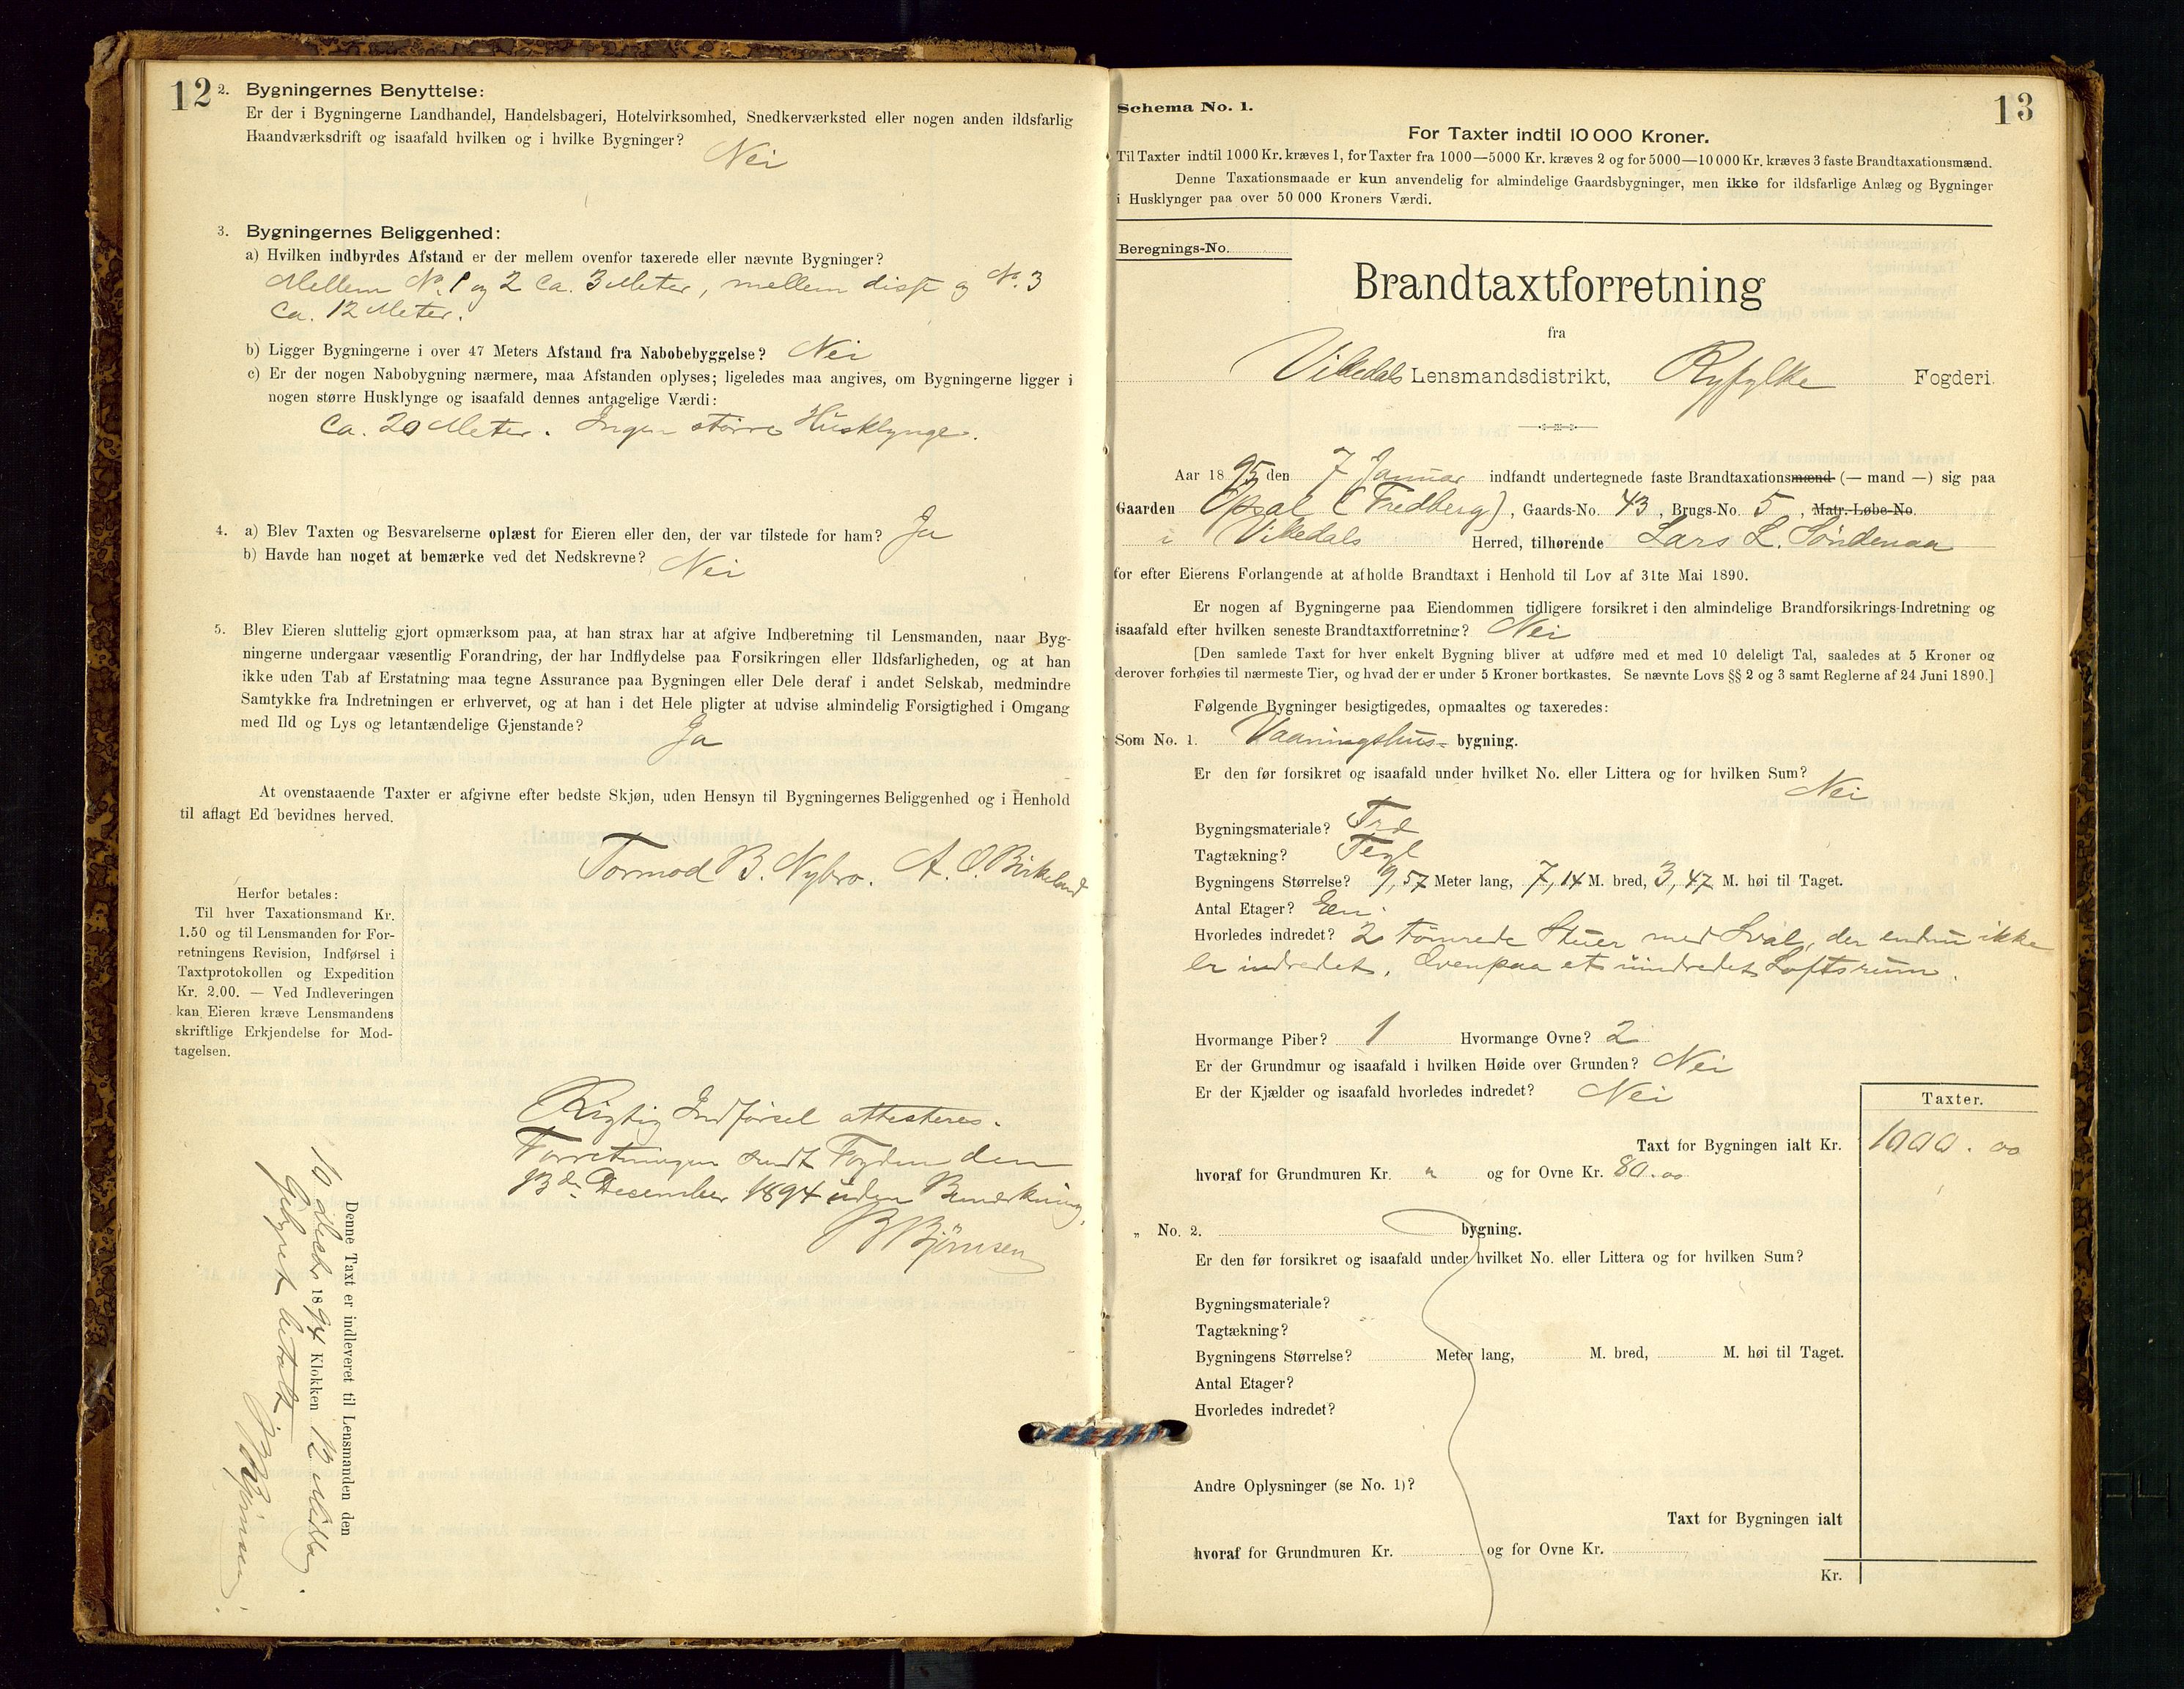 12
2. Bygningernes Benyttelse:
Er der i Bygningerne Landhandel, Handelsbageri, Hotelvirksomhed, Snedkerværksted eller nogen anden ildsfarlig
Haandværksdrift og isaafald hvilken og i hvilke Bygninger?
Nei
3. Bygningernes Beliggenhed:
a) Hvilken indbyrdes Afstand er der mellem ovenfor taxerede eller nævnte Bygninger?
Mellem No. 1 og 2 ca. 3 Meter, mellem disse og No. 3
ca. 12 Meter.
b) Ligger Bygningerne i over 47 Meters Afstand fra Nabobebyggelse? Nei
c) Er der nogen Nabobygning nærmere, maa Afstanden oplyses; ligeledes maa angives, om Bygningerne ligger i
nogen større Husklynge og isaafald dennes antagelige Værdi:
ca. 20 Meter. Ingen større Husklynge.
4. a) Blev Taxten og Besvarelserne oplæst for Eieren eller den, der var tilstede for ham? Ja
b) Havde han noget at bemærke ved det Nedskrevne? Nei
5. Blev Eieren sluttelig gjort opmærksom paa, at han strax har at afgive Indberetning til Lensmanden, naar Byg-
ningerne undergaar væsentlig Forandring, der har Indflydelse paa Forsikringen eller Ildsfarligheden, og at han
ikke uden Tab af Erstatning maa tegne Assurance paa Bygningen eller Dele deraf i andet Selskab, medmindre
Samtykke fra Indretningen er erhvervet, og at han i det Hele pligter at udvise almindelig Forsigtighed i Omgang
med Ild og Lys og letantændelige Gjenstande? Ja
At ovenstaaende Taxter er afgivne efter bedste Skjøn, uden Hensyn til Bygningernes Beliggenhed og i Henhold
til aflagt Ed bevidnes herved.
Tormod B. Nybro. A. O. Birkeland
Herfor betales:
Til hver Taxationsmand Kr.
1.50 og til Lensmanden for For-
retningens Revision, Indførsel i
Taxtprotokollen og Expedition
Kr. 2.00. — Ved Indleveringen
kan Eieren kræve Lensmandens
skriftlige Erkjendelse for Mod-
tagelsen.
Rigtig Indførsel attesteres.
Forretningen sendt Fogden den
13de December 1894 uden Bemærkning.
B Bjørnsen
Denne Taxt er indleveret til Lensmanden den
1894 Klokken 12 Middag.
Gebyret betalt.
B Bjørnsen.
13
Schema No. 1.
For Taxter indtil 10 000 Kroner.
Til Taxter indtil 1000 Kr. kræves 1, for Taxter fra 1000—5000 Kr. kræves 2 og for 5000—10 000 Kr. kræves 3 faste Brandtaxationsmænd.
Denne Taxationsmaade er kun anvendelig for almindelige Gaardsbygninger, men ikke for ildsfarlige Anlæg og Bygninger
i Husklynger paa over 50 000 Kroners Værdi.
Beregnings-No.
Brandtaxtforretning
fra
Vikedals Lensmandsdistrikt, Ryfylke Fogderi.
Aar 1895 den 7 Januar indfandt undertegnede faste Brandtaxationsmænd (— mand —) sig paa
Gaarden Opsal (Fredberg), Gaards-No. 43, Brugs-No. 5, Matr.-Løbe-No.
i Vikedals Herred, tilhørende Lars L. Søndenaa
for efter Eierens Forlangende at afholde Brandtaxt i Henhold til Lov af 31te Mai 1890.
Er nogen af Bygningerne paa Eiendommen tidligere forsikret i den almindelige Brandforsikrings-Indretning og
isaafald efter hvilken seneste Brandtaxtforretning? Nei
[Den samlede Taxt for hver enkelt Bygning bliver at udføre med et med 10 deleligt Tal, saaledes at 5 Kroner og
derover forhøies til nærmeste Tier, og hvad der er under 5 Kroner bortkastes. Se nævnte Lovs §§ 2 og 3 samt Reglerne af 24 Juni 1890.]
Følgende Bygninger besigtigedes, opmaaltes og taxeredes:
Som No. 1. Vaaningshus- bygning.
Er den før forsikret og isaafald under hvilket No. eller Littera og for hvilken Sum? Nei
Bygningsmateriale? Træ
Tagtækning? Tegl
Bygningens Størrelse? 9,57 Meter lang, 7,14 M. bred, 3,47 M. høi til Taget.
Antal Etager? Een.
Hvorledes indredet? 2 tømrede Stuer med Sval, der endnu ikke
er indredet. Ovenpaa et uindredet Loftsrum.
Hvormange Piber? 1 Hvormange Ovne? 2
Er der Grundmur og isaafald i hvilken Høide over Grunden? Nei
Er der Kjælder og isaafald hvorledes indredet? Nei
Taxter.
Taxt for Bygningen ialt Kr. 1000.00
hvoraf for Grundmuren Kr. " og for Ovne Kr. 80.00
„ No. 2. bygning.
Er den før forsikret og isaafald under hvilket No. eller Littera og for hvilken Sum?
Bygningsmateriale?
Tagtækning?
Bygningens Størrelse? Meter lang, M. bred, M. høi til Taget.
Antal Etager?
Hvorledes indredet?
Andre Oplysninger (se No. 1)?
Taxt for Bygningen ialt
hvoraf for Grundmuren Kr. og for Ovne Kr.
Kr.